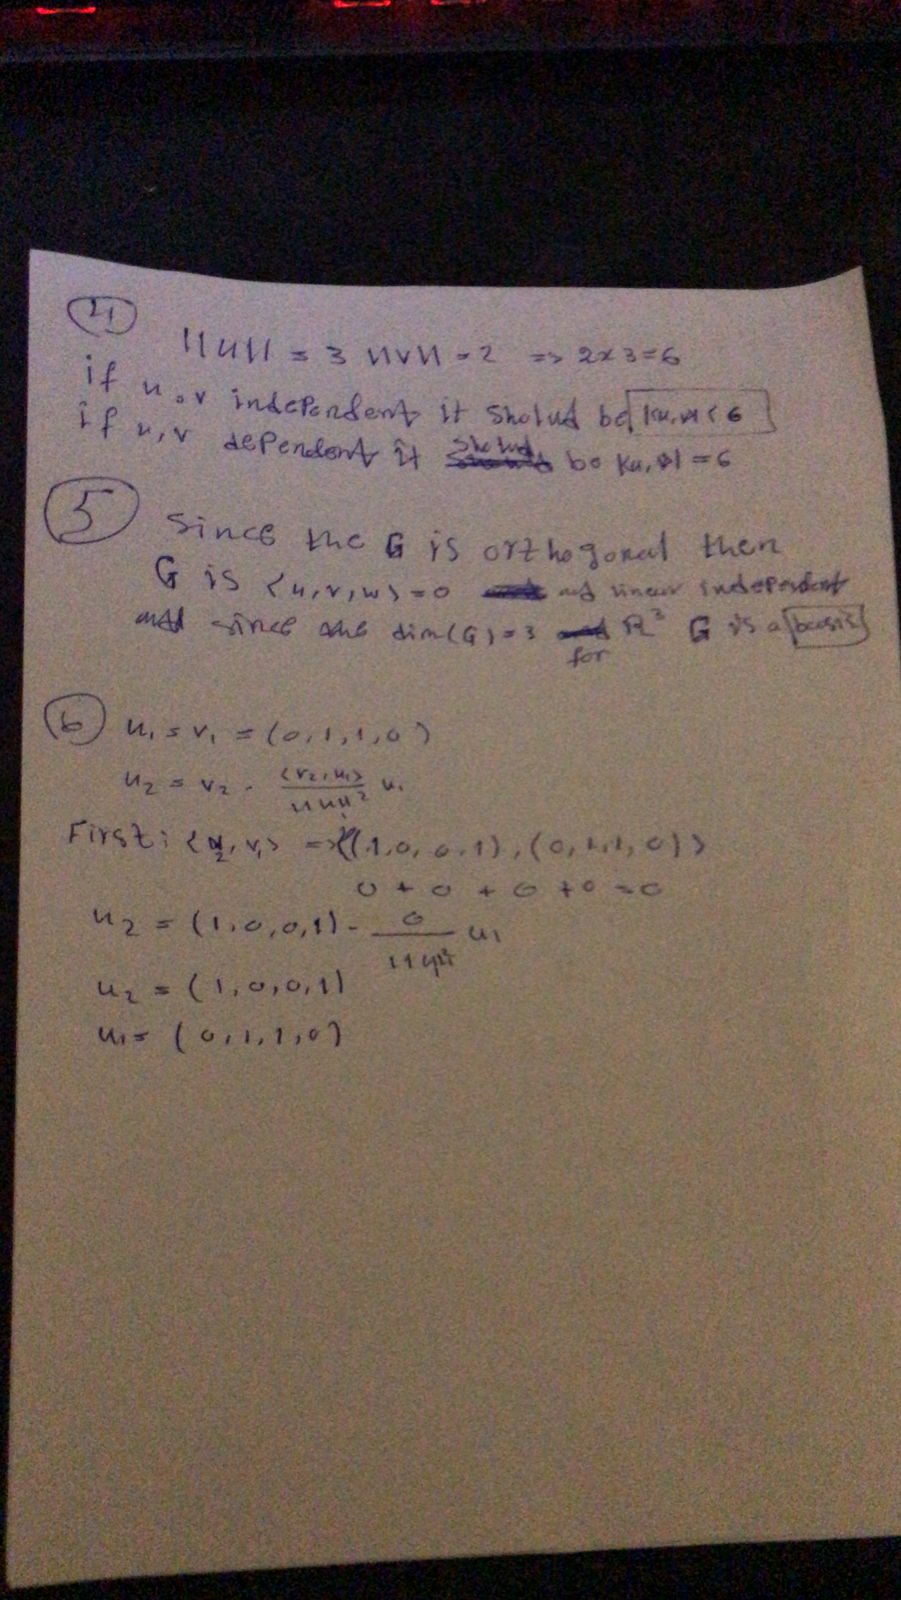 4
||u|| = 3 ||v|| = 2 => 2x3=6
if u,v independent it sholud be |<u,v>|< 6
if u,v dependent it sholud be |<u,v>| = 6
5 Since the G is orthogonal then
G is <u,v,w> = 0 and linear independent
and since the dim(G) = 3 for R³ G is a basis
6 u₁ = v₁ = (0,1,1,0)
u₂ = v₂ - <v₂,u₁>/||u₁||² u₁
First: <v₂,v₁> => <(1,0,0,1),(0,1,1,0)>
0 + 0 + 0 + 0 = 0
u₂ = (1,0,0,1) - 0/||u₁||² u₁
u₂ = (1,0,0,1)
u₁ = (0,1,1,0)